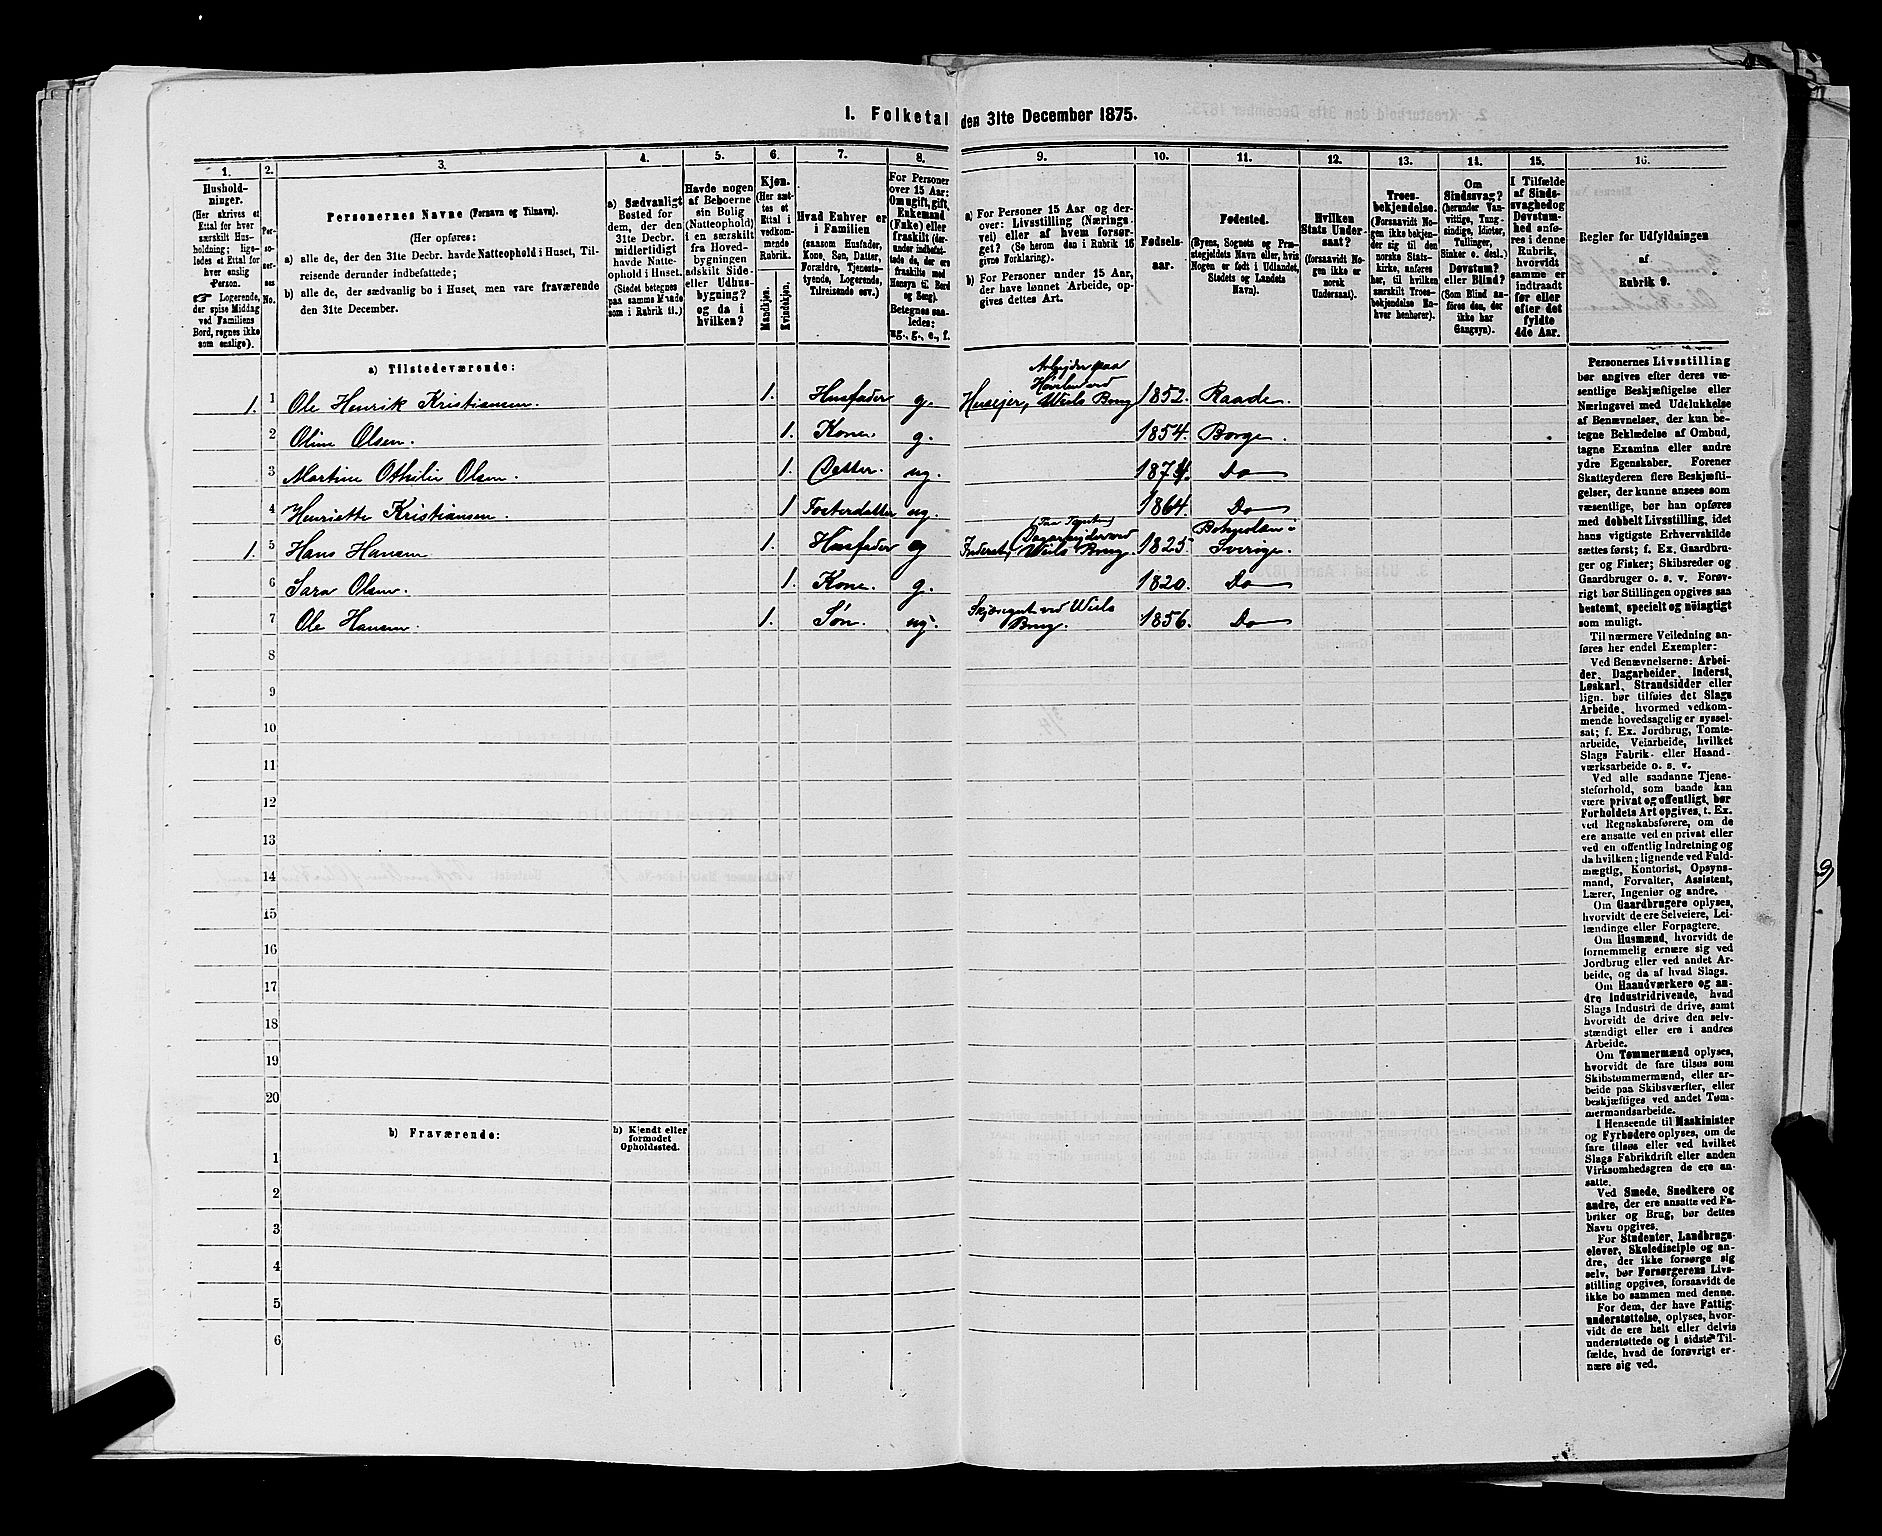 1. Folketal den 31te December 1875.
1. 2. 3. 4. 5. 6. 7. 8. 9. 10. 11. 12. 13. 14. 15. 16.
Hushold-
ninger.
(Her skrives et
Ettal for hver
særskilt Hus-
holdning; lige-
ledes et Ettal for
hver enslig
Person.
☞ Logerende,
der spise Middag
ved Familiens
Bord, regnes ikke
som enslige).
Per-
so-
ner-
nes
No.
Personernes Navne (Fornavn og Tilnavn).
(Her opføres:
a) alle de, der den 31te Decbr. havde Natteophold i Huset, Til-
reisende derunder indbefattede;
b) alle de, der sædvanlig bo i Huset, men vare fraværende
den 31te December.
a) Sædvanligt
Bosted for
dem, der den
31te Decbr.
midlertidigt
havde Natte-
ophold i Huset.
(Stedet betegnes
paa samme Maade
som i Rubrik 11.)
Havde nogen
af Beboerne
sin Bolig
(Natteophold)
i en særskilt
fra Hoved-
bygningen
adskilt Side-
eller Udhus-
bygning?
og da i
hvilken?
Kjøn.
(Her sæt-
tes et
Ettal i
vedkom-
mende
Rubrik.
Mandkjøn.
Kvindekjøn.
Hvad Enhver er
i Familien
(saasom Husfader,
Kone, Søn, Datter,
Forældre, Tjeneste-
tyende, Logerende,
Tilreisende osv.)
For Personer
over 15 Aar:
Om ugift, gift,
Enkemand
(Enke) eller
fraskilt (der-
under indbefat-
tede de, der ere
fraskilte med
Hensyn til Bord
og Seng).
Betegnes saa-
ledes:
ug., g., e., f.
a) For Personer 15 Aar og der-
over: Livsstilling (Nærings-
vei) eller af hvem forsør-
get? (Se herom den i Rubrik 16
givne Forklaring).
b) For Personer under 15 Aar,
der have lønnet Arbeide, op-
gives dettes Art.
Fødsels-
aar.
Fødested.
(Byens, Sognets og Præ-
stegjeldets Navn eller, hvis
Nogen er født i Udlandet,
Stedets og Landets
Navn).
Hvilken
Stats Under-
saat?
(forsaavidt No-
gen ikke er
norsk
Undersaat).
Troes-
bekjendelse.
(Forsaavidt No-
gen ikke bekjen-
der sig til den
norske Stats-
kirke, anføres
her, til hvilken
særskilt Troes-
bekjendelse En-
hver henhører).
Om
Sindssvag?
(herunder Van-
vittige, Tung-
sindige, Idioter,
Tullinger,
Sinker o. desl.)
Døvstum?
eller Blind?
(Som Blind an-
føres den, der
ikke har
Gangsyn).
I Tilfælde
af Sinds-
svaghed og
Døvstum-
hed anfø-
res i denne
Rubrik,
hvorvidt
samme er
indtraadt
før eller
efter det
fyldte
4de Aar.
Regler for Udfyldningen
af
Rubrik 9.
a) Tilstedeværende:
1. 1 Ole Henrik Kristiansen. 1. Husfader g. Husejer, Arbejder paa Høvleri ved Weels Brug 1852. Raade.
2 Oline Olsen. 1. Kone. g. 1854. Borge.
3 Martine Othilie Olsen. 1. Datter. ug. 1874. Do
4 Henriette Kristiansen. 1 Fosterdatter ug. 1864. Do
1. 5 Hans Hansen 1. Husfader g Inderst, Dagarbejder ved Weels Brug. 1825 Bohuslæn i Sverige.
6 Sara Olsen. 1. Kone. g. 1820. Do
7 Ole Hansen. 1. Søn. ug. ved Weels Brug. 1856. Do
8
9
10
11
12
13
14
15
16
17
18
19
20
b) Fraværende:
b) Kjendt eller
formodet
Opholdssted.
1
2
3
4
5
6
Personernes Livsstilling
bør angives efter deres væ-
sentlige Beskjæftigelse eller
Næringsvei med Udelukkelse
af Benævnelser, der kun be-
tegne Beklædelse af Ombud,
tagne Examina eller andre
ydre Egenskaber. Forener
Skatteyderen flere Beskjæfti-
gelser, der kunne ansees som
væsentlige, bør han opføres
med dobbelt Livsstilling, idet
hans vigtigste Erhvervskilde
sættes først; f. Ex. Gaardbru-
ger og Fisker; Skibsreder og
Gaardbruger o. s. v. Forøv-
rigt bør Stillingen opgives saa
bestemt, specielt og nøiagtigt
som muligt.
Til nærmere Veiledning an-
føres her endel Exempler:
Ved Benævnelserne: Arbei-
der, Dagarbeider, Inderst,
Løskarl, Strandsidder eller
lign. bør tilføies det Slags
Arbeide, hvormed vedkom-
mende hovedsagelig er syssel-
sat; f. Ex. Jordbrug, Tomte-
arbeide, Veiarbeide, hvilket
Slags Fabrik- eller Haand-
værksarbeide o. s. v.
Ved alle saadanne Tjene-
steforhold, som baade kan
være privat og offentligt, bør
Forholdets Art opgives, t. Ex.
ved Regnskabsførere, om de
ere ansatte ved en privat eller
ved en offentlig Indretning og
da hvilken; lignende ved Fuld-
mægtig, Kontorist, Opsyns-
mand, Forvalter, Assistent,
Lærer, Ingeniør og andre.
Om Gaardbrugere oplyses,
hvorvidt de ere Selveiere, Lei-
lændinge eller Forpagtere.
Om Husmænd, hvorvidt de
fornemmelig ernære sig ved
Jordbrug eller ved andet Ar-
beide, og da af hvad Slags.
Om Haandværkere og an-
dre Industridrivende, hvad
Slags Industri de drive, samt
hvorvidt de drive den selv-
stændigt eller ere i andres
Arbeide.
Om Tømmermænd oplyses,
hvorvidt de fare tilsøs som
Skibstømmermænd, eller ar-
beide paa Skibsværfter, eller
beskjæftiges ved andet Tøm-
mermandsarbeide.
I Henseende til Maskinister
og Fyrbødere oplyses, om de
fare tilsøs eller ved hvilket
Slags Fabrikdrift eller anden
Virksomhedsgren de ere an-
satte.
Ved Smede, Snedkere og
andre, der ere ansatte ved Fa-
briker og Brug, bør dettes
Navn opgives.
For Studenter, Landbrugs-
elever, Skoledisciple og an-
dre, der ikke forsørge sig
selv, bør Forsørgerens Livs-
stilling opgives, forsaavidt de
ikke bo sammen med denne.
For dem, der have Fattig-
understøttelse, oplyses, hvor-
vidt de ere helt eller delvis
understøttede og i sidste Til-
fælde, hvad de forøvrigt er-
nære sig ved.